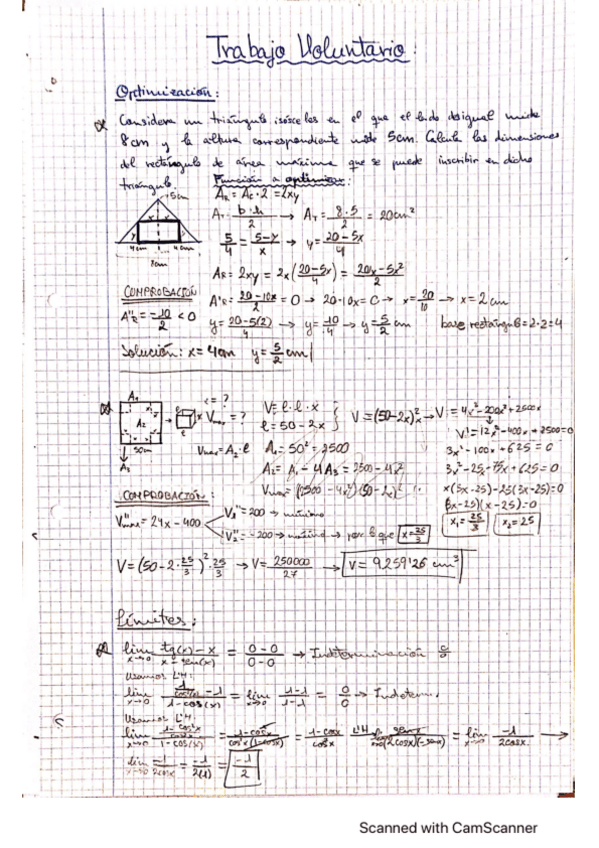 Trabajo Voluntario:
Optimización:
Considera un triángulo isósceles en el que el lado desigual mide
8cm y la altura correspondiente mide 5cm. Calcula las dimensiones
del rectángulo de área máxima que se puede inscribir en dicho
triángulo. Función a optimizar:
5cm
A_R = A_C · 2 = 2xy
A_T = b·h/2 → A_T = 8·5/2 = 20cm²
5/4 = 5-y/x → y = 20-5x/4
4cm 4cm
8cm
A_R = 2xy = 2x(20-5x/4) = 20x-5x²/2
COMPROBACIÓN
A'_R = 20-10x/2 = 0 → 20-10x = 0 → x = 20/10 → x = 2cm
A''_R = -10/2 < 0
y = 20-5(2)/4 → y = 10/4 → y = 5/2 cm base rectángulo = 2·2 = 4
Solución: x = 4cm y = 5/2 cm
A₁
A₂
50cm
A₃
V max = ?
V = l·l·x
l = 50-2x
V = (50-2x)²x → V = 4x³-200x²+2500x
V' = 12x²-400x+2500 = 0
Vmax = A₂·l A₁ = 50² = 2500
3x²-100x+625 = 0
A₂ = A₁ - 4A₃ = 2500-4x²
3x²-25x-75x+625 = 0
Vmax = (2500-4x²)(50-2x)
x(3x-25)-25(3x-25) = 0
(3x-25)(x-25) = 0
x₁ = 25/3 x₂ = 25
COMPROBACIÓN:
V''max = 24x-400
V₂'' = 200 → mínimo
V₂'' = -200 → máximo → por lo que x = 25/3
V = (50-2·25/3)²·25/3 → V = 250000/27 → V = 9259'26 cm³
Límites:
lim x→0 tg(x)-x/x-sen(x) = 0-0/0-0 → Indeterminación 0/0
Usamos L'H:
lim x→0 1/cos²(x) -1/1-cos(x) = lim x→0 1-1/1-1 = 0/0 → Indeterm.
Usamos L'H:
lim x→0 1-cos²x/cos²x/1-cos(x) = 1-cos²x/cos²x(1-cosx) = 1-cosx/cos²x L'H senx/(2cosx)(-senx) = lim x→0 -1/2cosx →
lim x→0 -1/2cosx = -1/2(1) = -1/2
Scanned with CamScanner